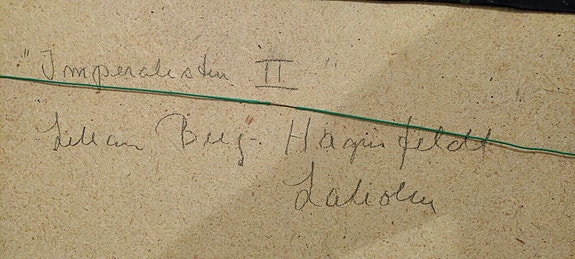 "Imperalistin II"
Lilian Berg-Hagenfeldt
Laholm